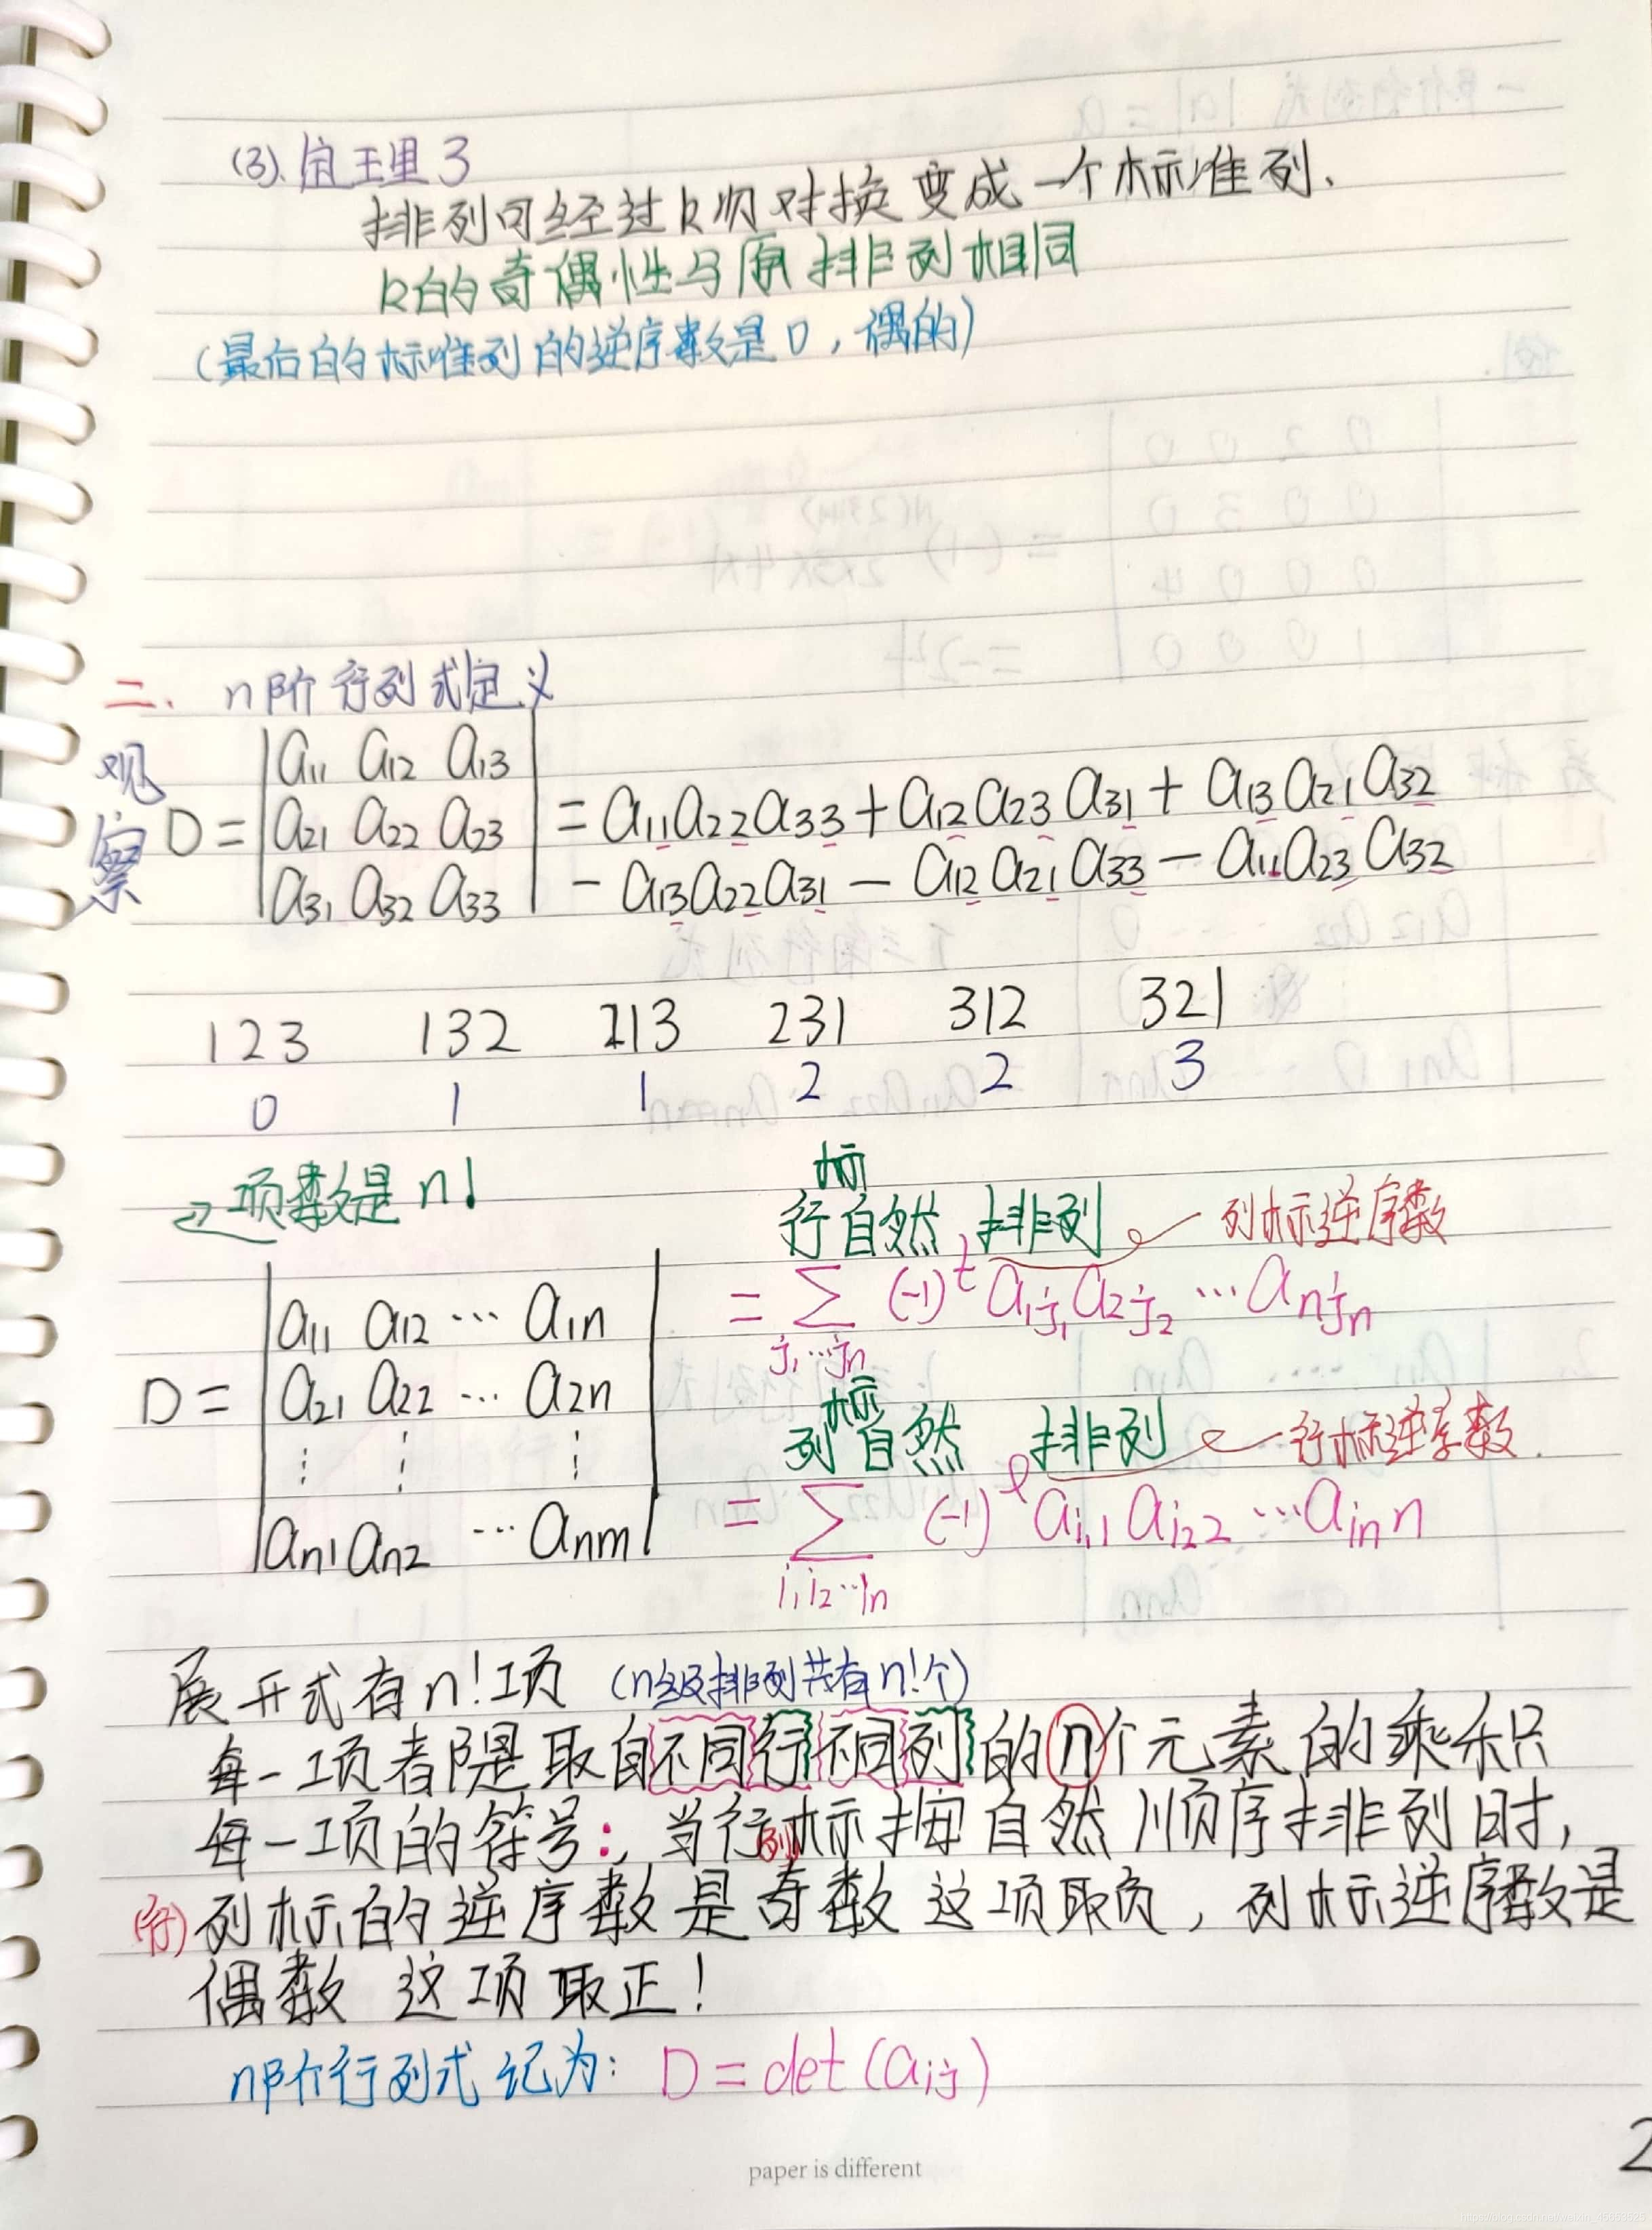 (3). 定理3
排列可经过k次对换变成一个标准列.
k的奇偶性与原排列相同
(最后的标准列的逆序数是0，偶的)
二. n阶行列式定义
观察
D = | a11 a12 a13 |
| a21 a22 a23 |
| a31 a32 a33 |
= a11a22a33 + a12a23a31 + a13a21a32
- a13a22a31 - a12a21a33 - a11a23a32
123 132 213 231 312 321
0 1 1 2 2 3
→项数是n!
行标自然排列 列标逆序数
D = | a11 a12 ⋯ a1n |
| a21 a22 ⋯ a2n |
| ⋮ ⋮ ⋮ |
| an1 an2 ⋯ anm |
= ∑j1⋯jn (-1)^t a1j1 a2j2 ⋯ anjn
列标自然排列 行标逆序数.
= ∑i1i2⋯in (-1)^l ai11 ai22 ⋯ ainn
展开式有n!项 (n级排列共有n!个)
每一项都是取自不同行不同列的n个元素的乘积
每一项的符号：当行(列)标按自然顺序排列时，
(行)列标的逆序数是奇数这项取负，列标逆序数是
偶数 这项取正！
n阶行列式记为: D = det(aij)
paper is different
2